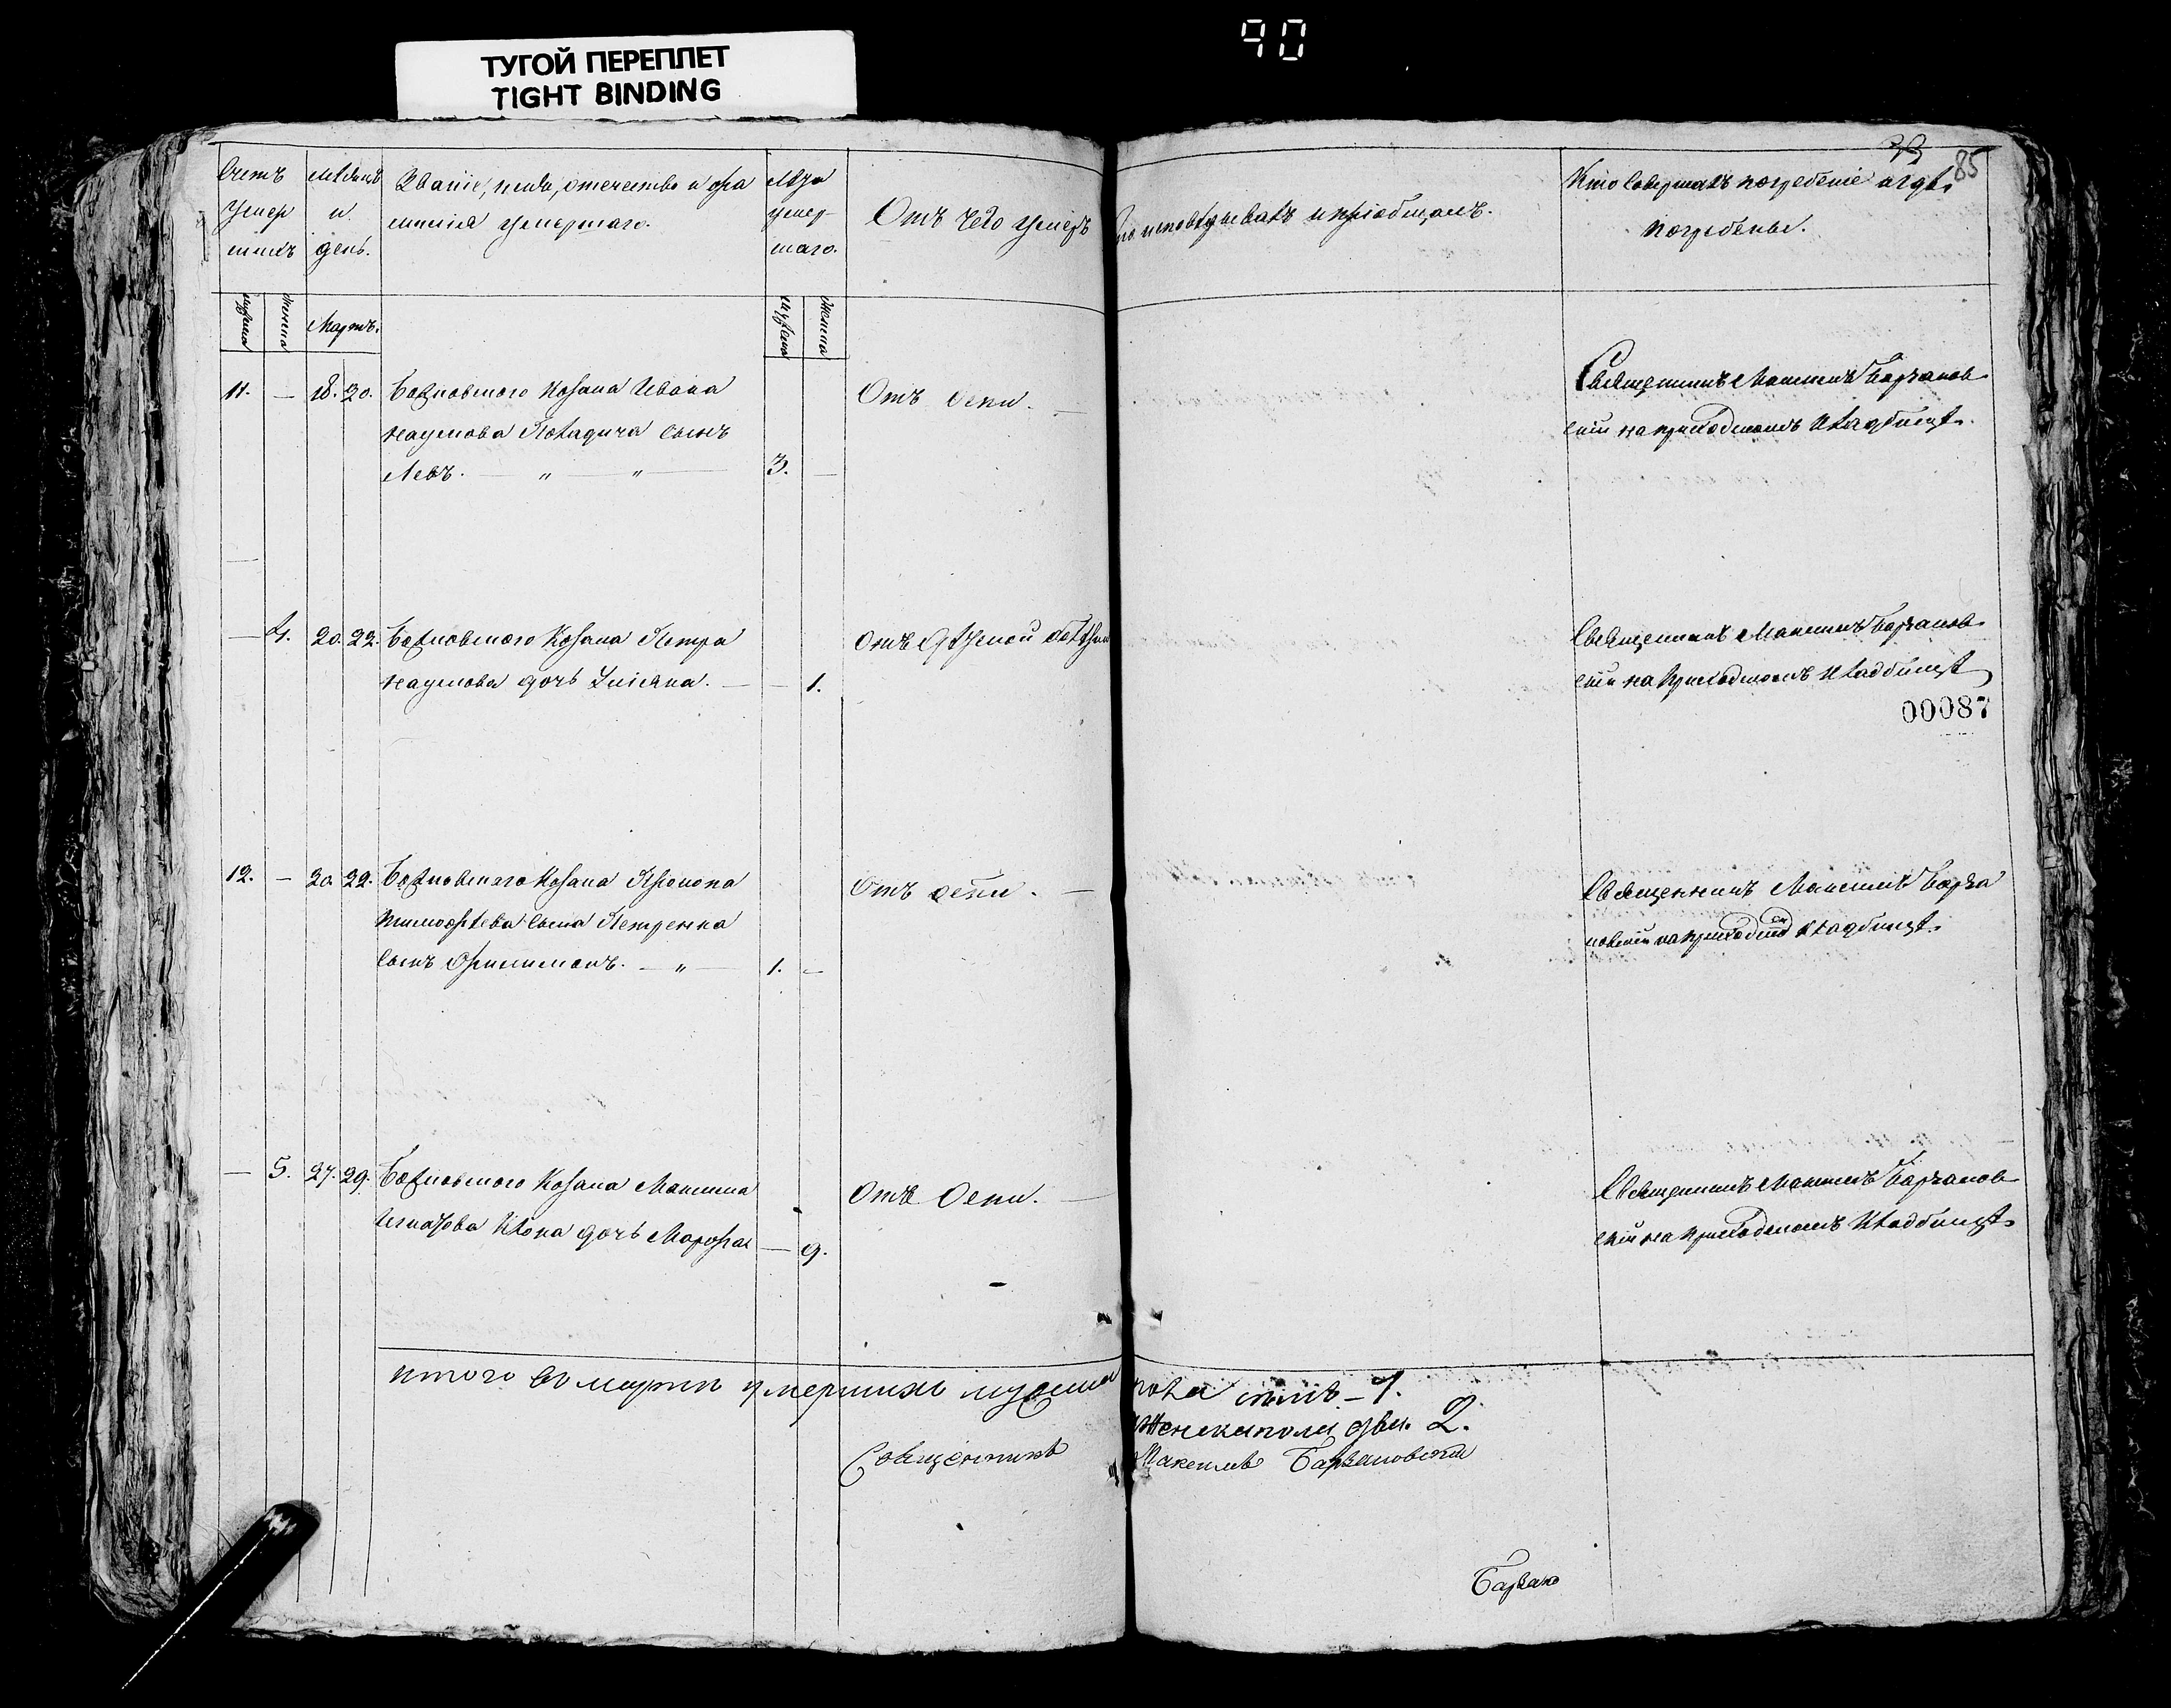 90
ТУГОЙ ПЕРЕПЛЕТ
TIGHT BINDING
85
Счетъ умер шихъ
Мѣсяцъ и день.
Званіе, имя, отечество и фа
милія умершаго.
Лѣта умер-
шаго.
Отъ чего умеръ
исповѣдывалъ и пріобщалъ.
Кто совершалъ погребеніе и гдѣ
погребены.
мужеска
женска
Мартъ.
мужеска
женска
11. — 18. 20.
Козака Ивана
Наумова сынъ
Левъ. — " — " —
3. —
Отъ оспи. —
Священникъ Максимъ Барзанов-
скій на приходскомъ кладбищѣ.
— 4. 20. 22.
Козака Петра
Наумова дочь —
— 1.
Отъ
Священникъ Максимъ Барзанов-
скій на приходскомъ кладбищѣ
00087
12. — 20. 22.
Козака
Тимофѣева сына Петренка
сынъ Филимонъ. — " —
1. —
Отъ оспи. —
Священникъ Максимъ Барза
новскій на приходском кладбищѣ.
— 5. 27. 29.
Козака Максима
дочь Марфа
— 9.
Отъ оспи. —
Священникъ Максимъ Барзанов-
скій на приходскомъ кладбищѣ.
итого во марти умершихъ мужеска пола — 7.
женска пола две. 2.
Священникъ Максимъ Барзановскій
Барзано